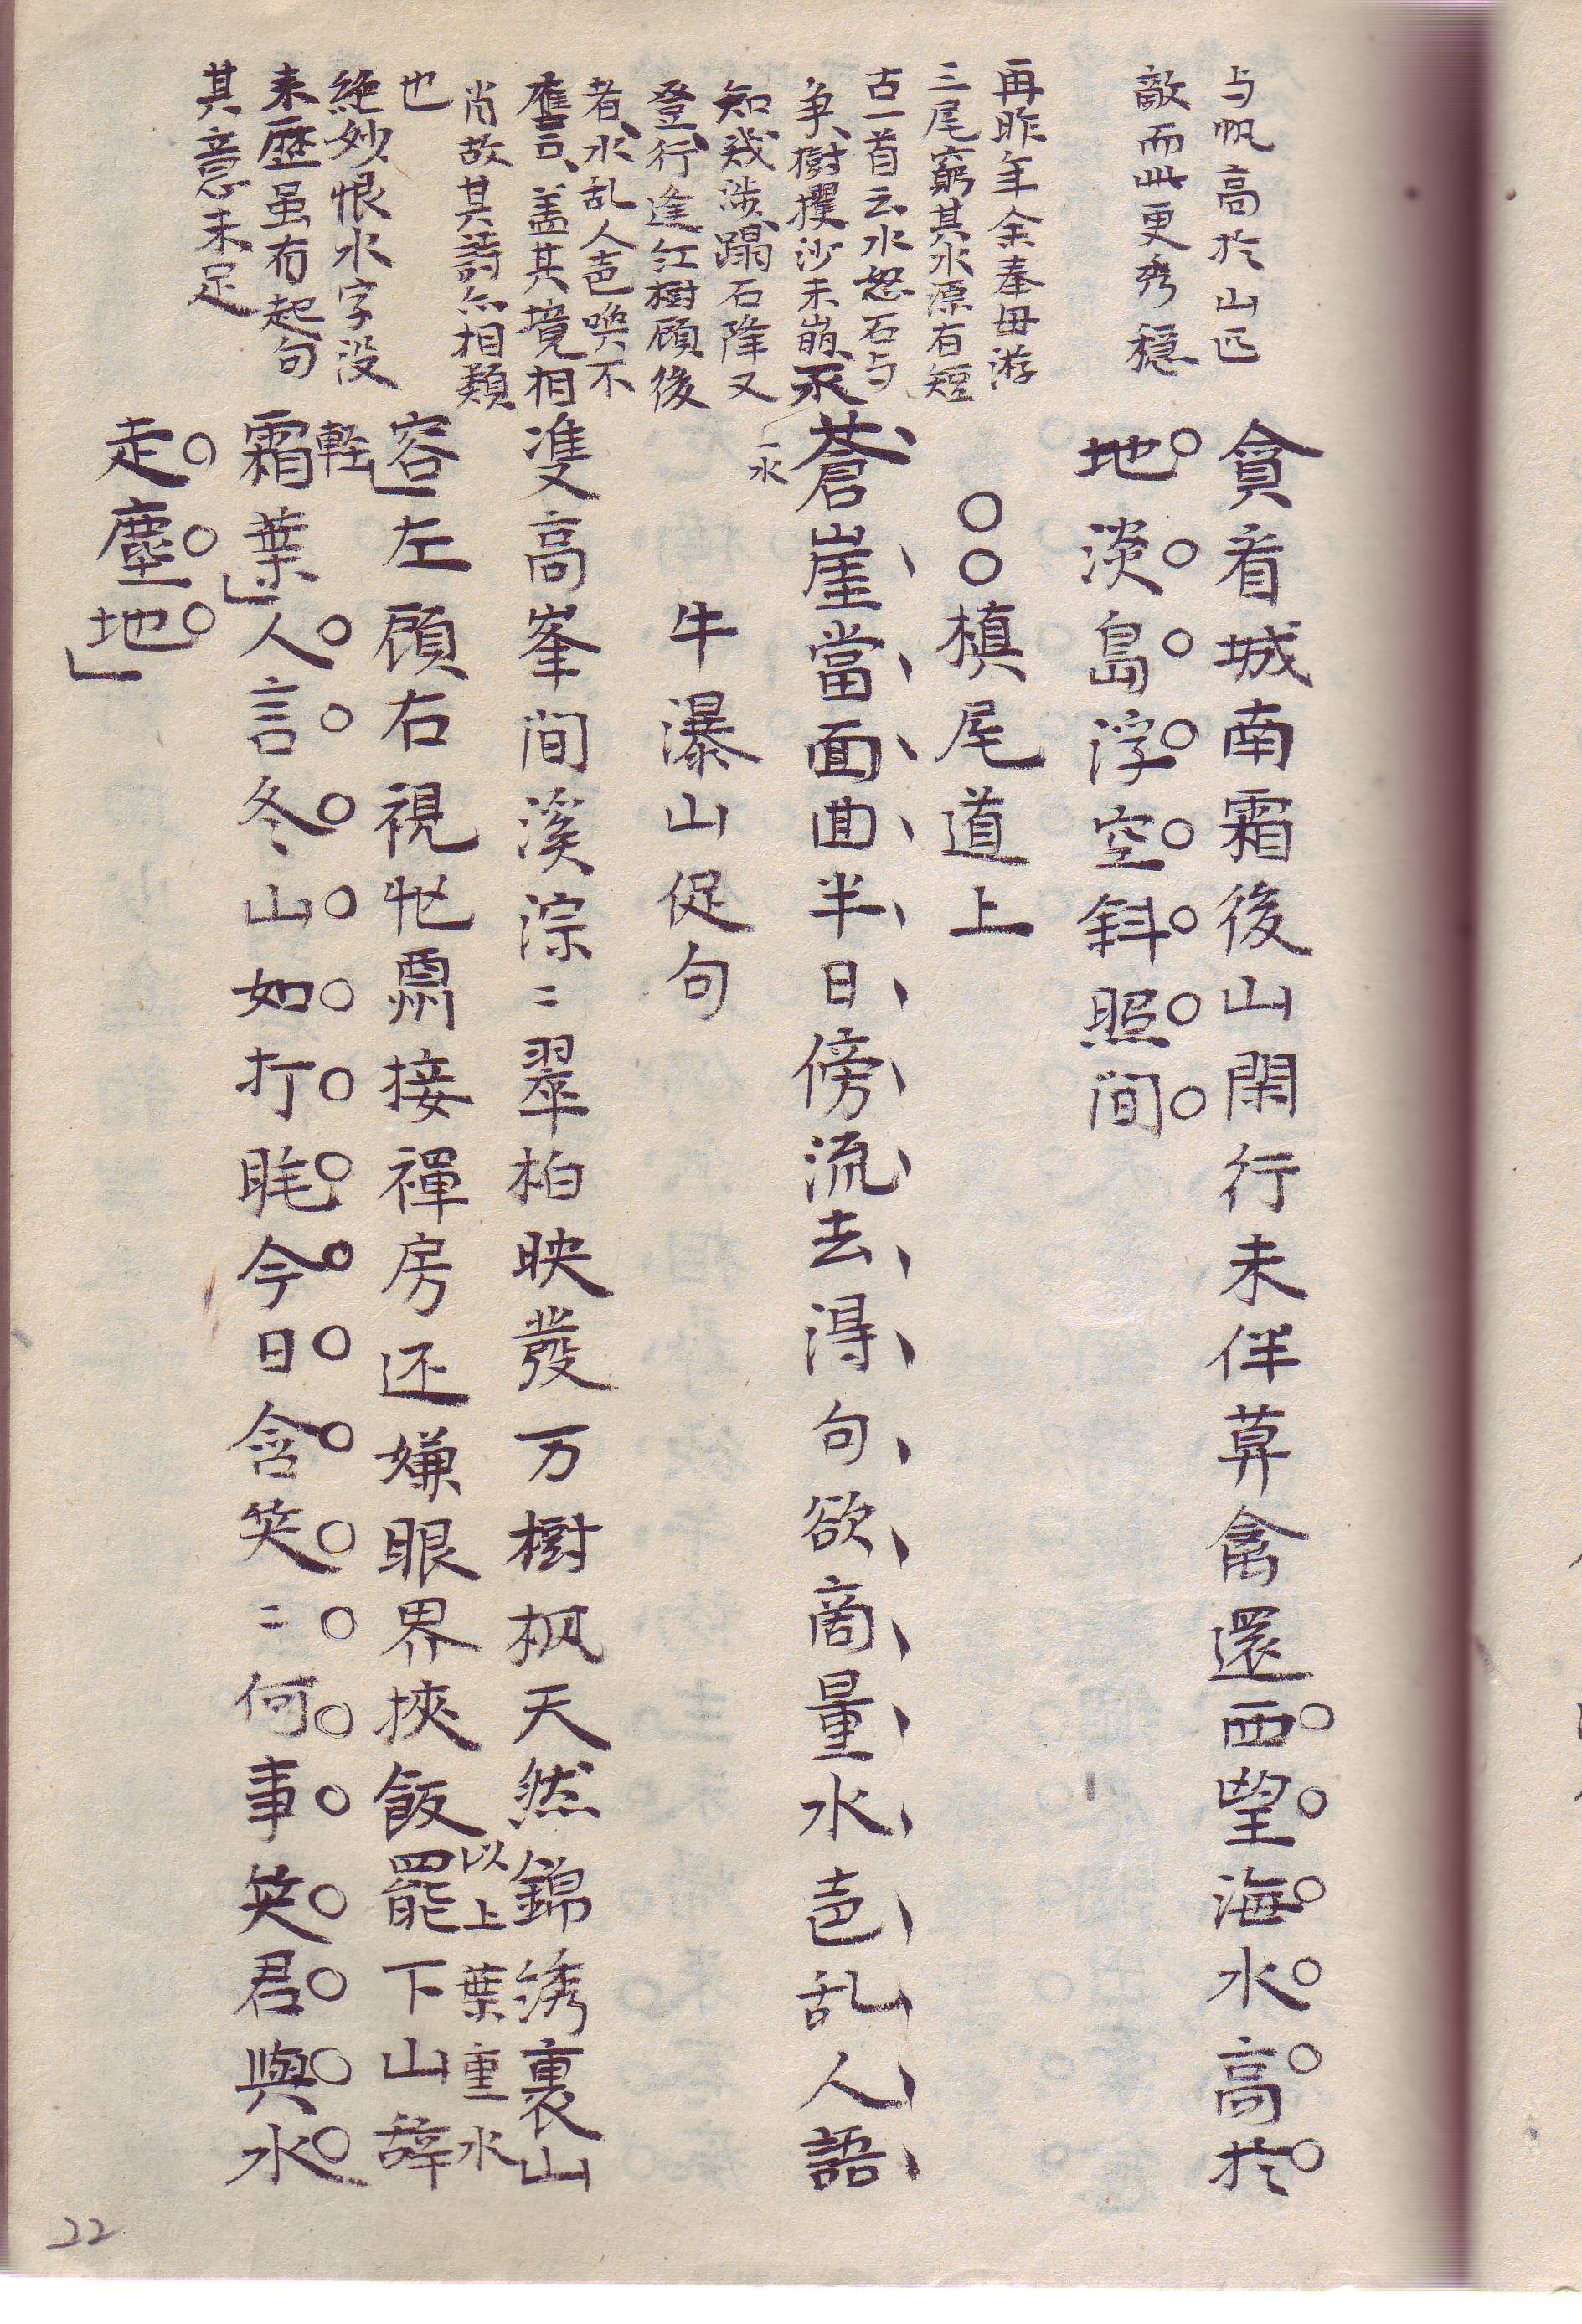 与帆高於山匹
敵而此更秀穏
貪看城南霜後山閑行未伴草禽還西望海水高於
地淡島浮空斜照间
再昨年余奉毌游
三尾窮其水源有短
古一首云水怒石与
争樹攫沙未崩不
知幾渉蹋石降又
登行逢紅樹顧後
者水乱人声喚不
應言盖其境相
肖故其詩亦相類
也
〇〇槙尾道上
蒼崖當面曲半日傍流去得句欲商量水声乱人語
一水
牛瀑山促句
絶妙恨水字没
来歴虽有起句
其意未足
双高峯间溪淙〻翠柏映發万樹枫天然錦綉裏山
容左顧右視忙粛接禪房还嫌眼界挾飯罷下山辞
以上葉重水
軽
霜葉人言冬山如打眊今日含笑〻何事笑君與水
走塵地
22